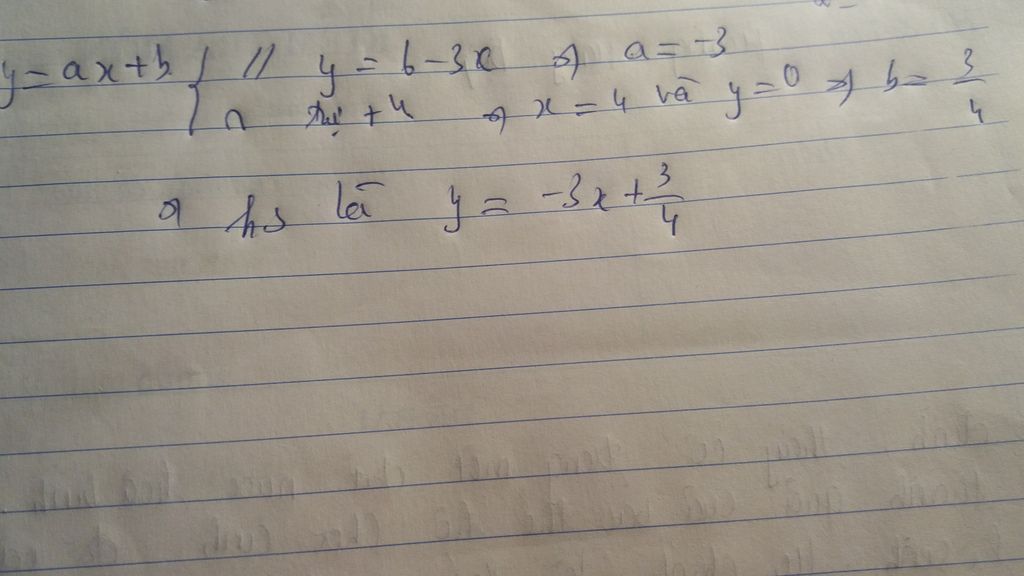 y = ax + b { // y = b - 3x ⇒ a = -3
∩ + 4 ⇒ x = 4 và y = 0 ⇒ b = 3/4
⇒ hs là y = -3x + 3/4